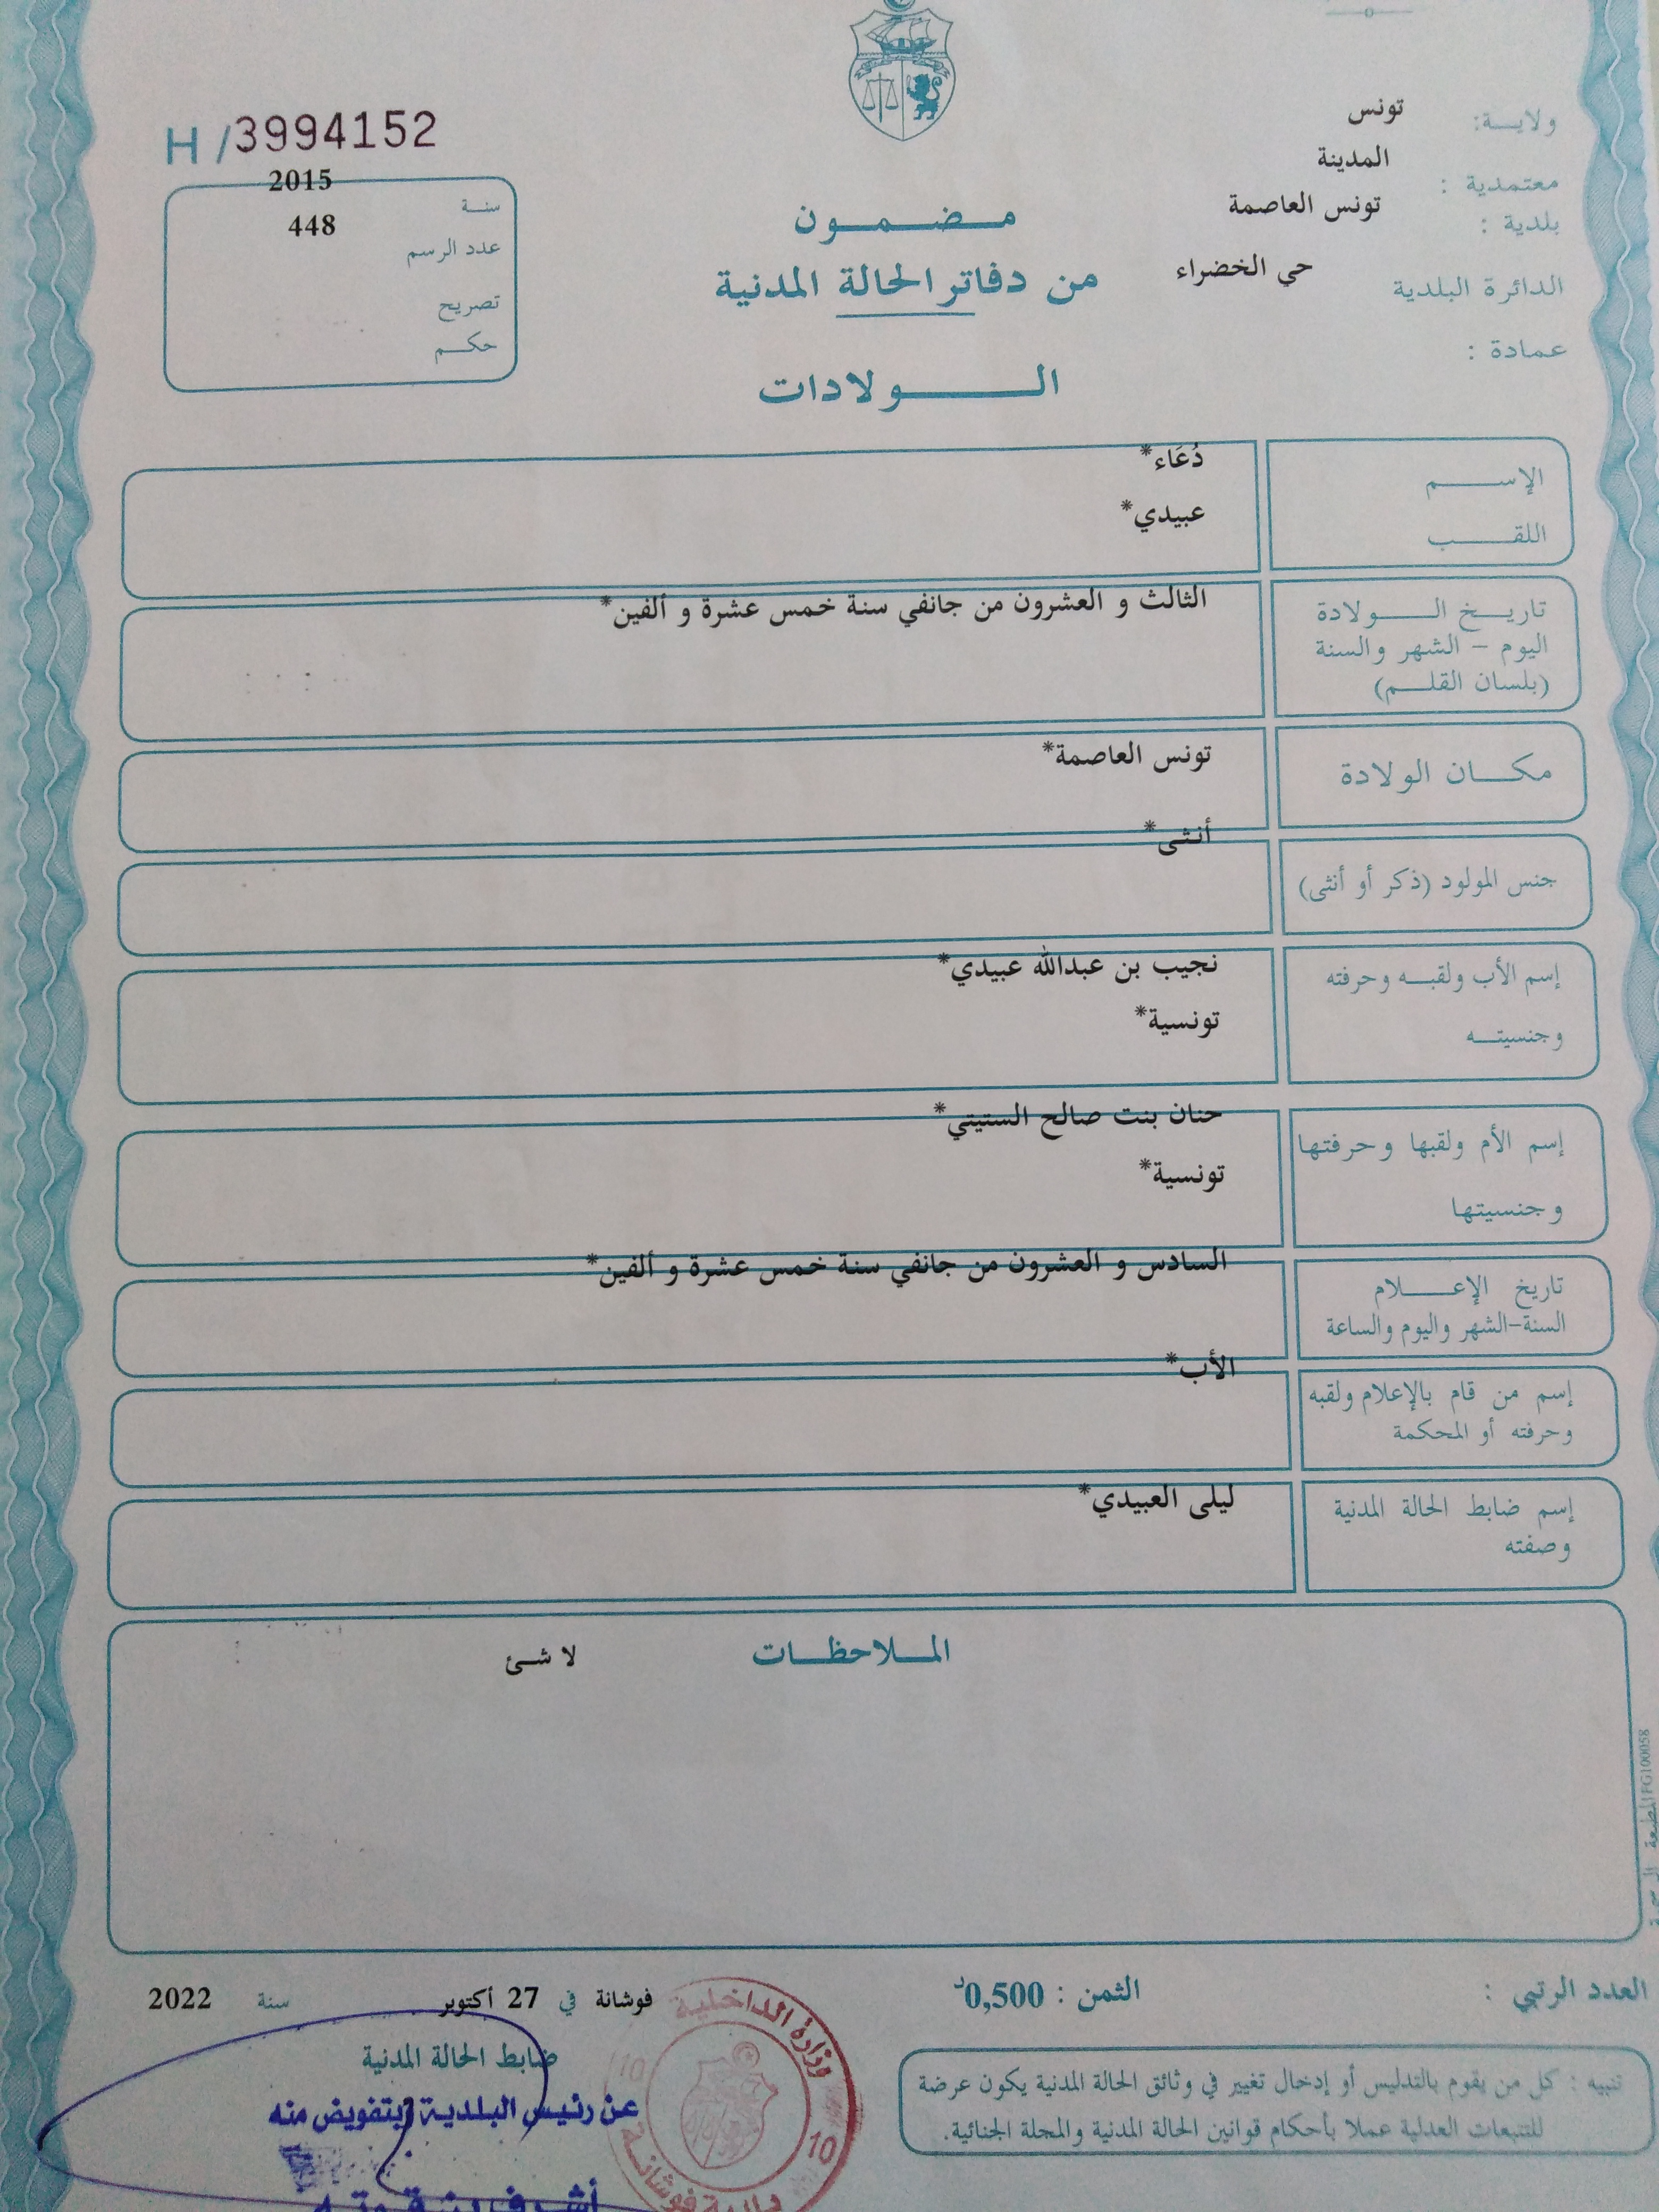 H/3994152
ولاية: تونس
معتمدية : المدينة
بلدية : تونس العاصمة
الدائرة البلدية حي الخضراء
عمادة :
سنة 2015
عدد الرسم 448
تصريح
حكم
مضمون
من دفاتر الحالة المدنية
الولادات
الإسم دُعَاء*
اللقب عبيدي*
تاريخ الولادة
اليوم – الشهر والسنة
(بلسان القلم)
الثالث و العشرون من جانفي سنة خمس عشرة و ألفين*
مكان الولادة تونس العاصمة*
جنس المولود (ذكر أو أنثى) أنثى*
إسم الأب ولقبه وحرفته
وجنسيته
نجيب بن عبدالله عبيدي*
تونسية*
إسم الأم ولقبها وحرفتها
وجنسيتها
حنان بنت صالح الستيتي*
تونسية*
تاريخ الإعلام
السنة-الشهر واليوم والساعة
السادس و العشرون من جانفي سنة خمس عشرة و ألفين*
إسم من قام بالإعلام ولقبه
وحرفته أو المحكمة
الأب*
إسم ضابط الحالة المدنية
وصفته
ليلى العبيدي*
الملاحظات لا شئ
العدد الرتبي :
الثمن : 0,500د
فوشانة في 27 أكتوبر سنة 2022
ضابط الحالة المدنية
عن رئيس البلدية وبتفويض منه
وزارة الداخلية
10
10
بلدية فوشانة
تنبيه : كل من يقوم بالتدليس أو إدخال تغيير في وثائق الحالة المدنية يكون عرضة
للتتبعات العدلية عملا بأحكام قوانين الحالة المدنية والمجلة الجنائية.
FG100058